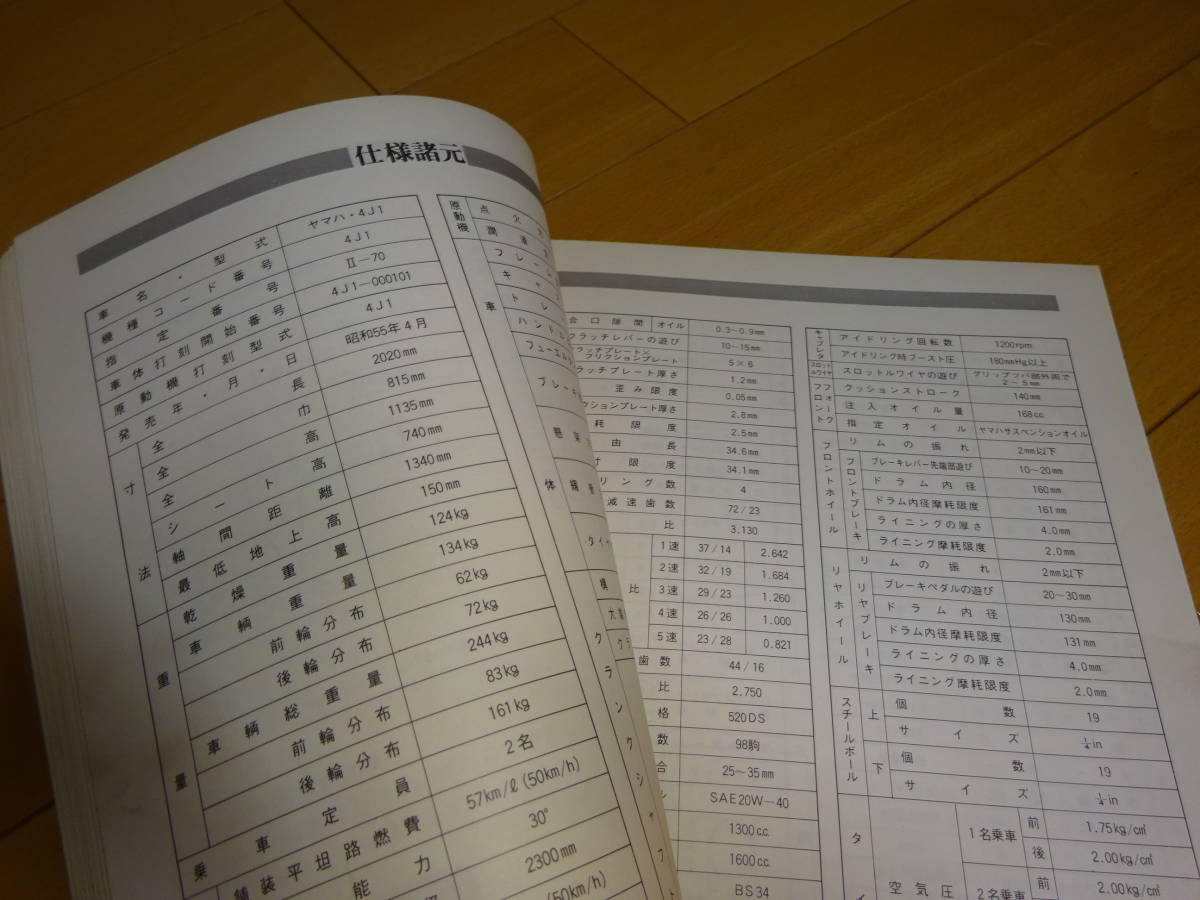 仕様諸元
車名・型式 ヤマハ・4J1
機種コード番号 4J1
指定番号 II-70
車体打刻開始番号 4J1-000101
原動機打刻型式 4J1
発売年・月・日 昭和55年4月
寸法
全長 2020mm
全巾 815mm
全高 1135mm
シート高 740mm
軸間距離 1340mm
最低地上高 150mm
重量
乾燥重量 124kg
車輌重量 134kg
前輪分布 62kg
後輪分布 72kg
車輌総重量 244kg
前輪分布 83kg
後輪分布 161kg
乗車定員 2名
舗装平坦路燃費 57km/ℓ(50km/h)
能力 30°
2300mm
(50km/h)
原動機
点火
潤滑
車体
フレーム
キャ
トレ
ハンドル
フューエル
ブレー
懸架
緩衝
タイヤ
クランクシャフト
合口隙間 オイル 0.3~0.9mm
クラッチレバーの遊び 10~15mm
ラッチプレート×フリクションプレート 5×6
ラッチプレート厚さ 1.2mm
歪み限度 0.05mm
クションプレート厚さ 2.8mm
耗限度 2.5mm
由長 34.6mm
限度 34.1mm
リング数 4
減速歯数 72/23
比 3.130
比
1速 37/14 2.642
2速 32/19 1.684
3速 29/23 1.260
4速 26/26 1.000
5速 23/28 0.821
歯数 44/16
比 2.750
格 520DS
数 98駒
合 25~35mm
SAE20W-40
1300c.c.
1600c.c.
BS34
キャブレタ
アイドリング回転数 1200rpm
アイドリング時ブースト圧 180mmHg以上
スロットルワイヤ
スロットルワイヤの遊び グリップツバ部外周で2~5mm
フロントフォーク
クッションストローク 140mm
注入オイル量 168cc
指定オイル ヤマハサスペンションオイル
フロントホイール
リムの振れ 2mm以下
フロントブレーキ
ブレーキレバー先端部遊び 10~20mm
ドラム内径 160mm
ドラム内径摩耗限度 161mm
ライニングの厚さ 4.0mm
ライニング摩耗限度 2.0mm
リヤホイール
リムの振れ 2mm以下
リヤブレーキ
ブレーキペダルの遊び 20~30mm
ドラム内径 130mm
ドラム内径摩耗限度 131mm
ライニングの厚さ 4.0mm
ライニング摩耗限度 2.0mm
スチールボール
上 個数 19
サイズ ¼in
下 個数 19
サイズ ¼in
タイ
空気圧
1名乗車 前 1.75kg/cm²
後 2.00kg/cm²
2名乗車 前 2.00kg/cm²